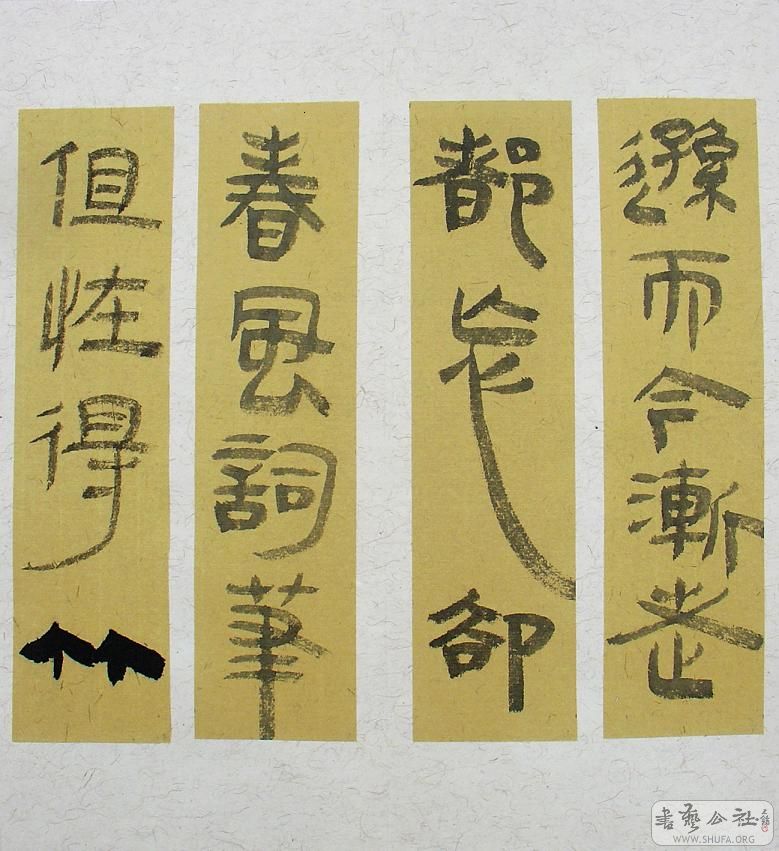 遜而今漸老
都忘卻
春風詞筆
但恠得竹
書藝公社
WWW.SHUFA.ORG